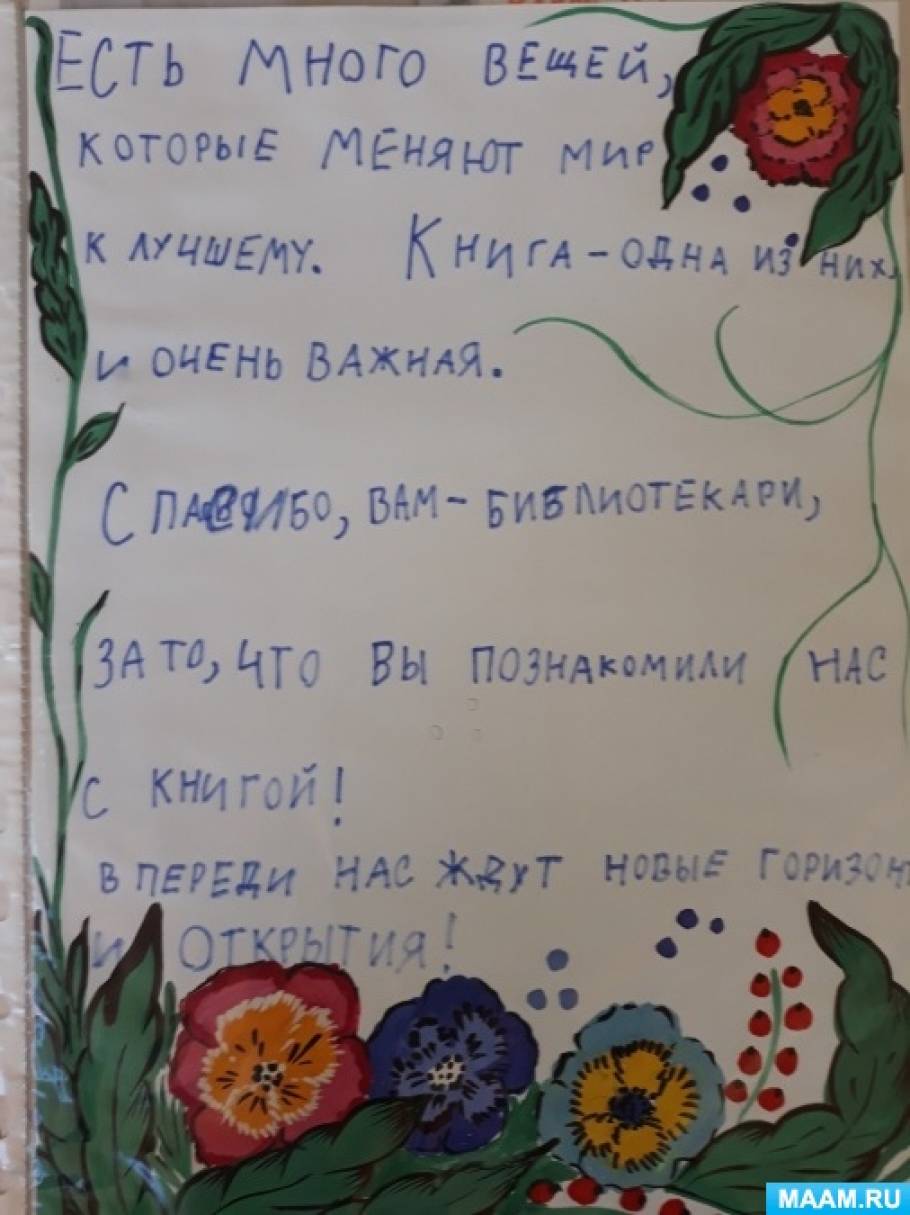 ЕСТЬ МНОГО ВЕЩЕЙ,
КОТОРЫЕ МЕНЯЮТ МИР
К ЛУЧШЕМУ. КНИГА - ОДНА ИЗ НИХ.
И ОЧЕНЬ ВАЖНАЯ.
СПАСИБО, ВАМ - БИБЛИОТЕКАРИ,
ЗА ТО, ЧТО ВЫ ПОЗНАКОМИЛИ НАС
С КНИГОЙ!
ВПЕРЕДИ НАС ЖДУТ НОВЫЕ ГОРИЗОН
И ОТКРЫТИЯ!
MAAM.RU